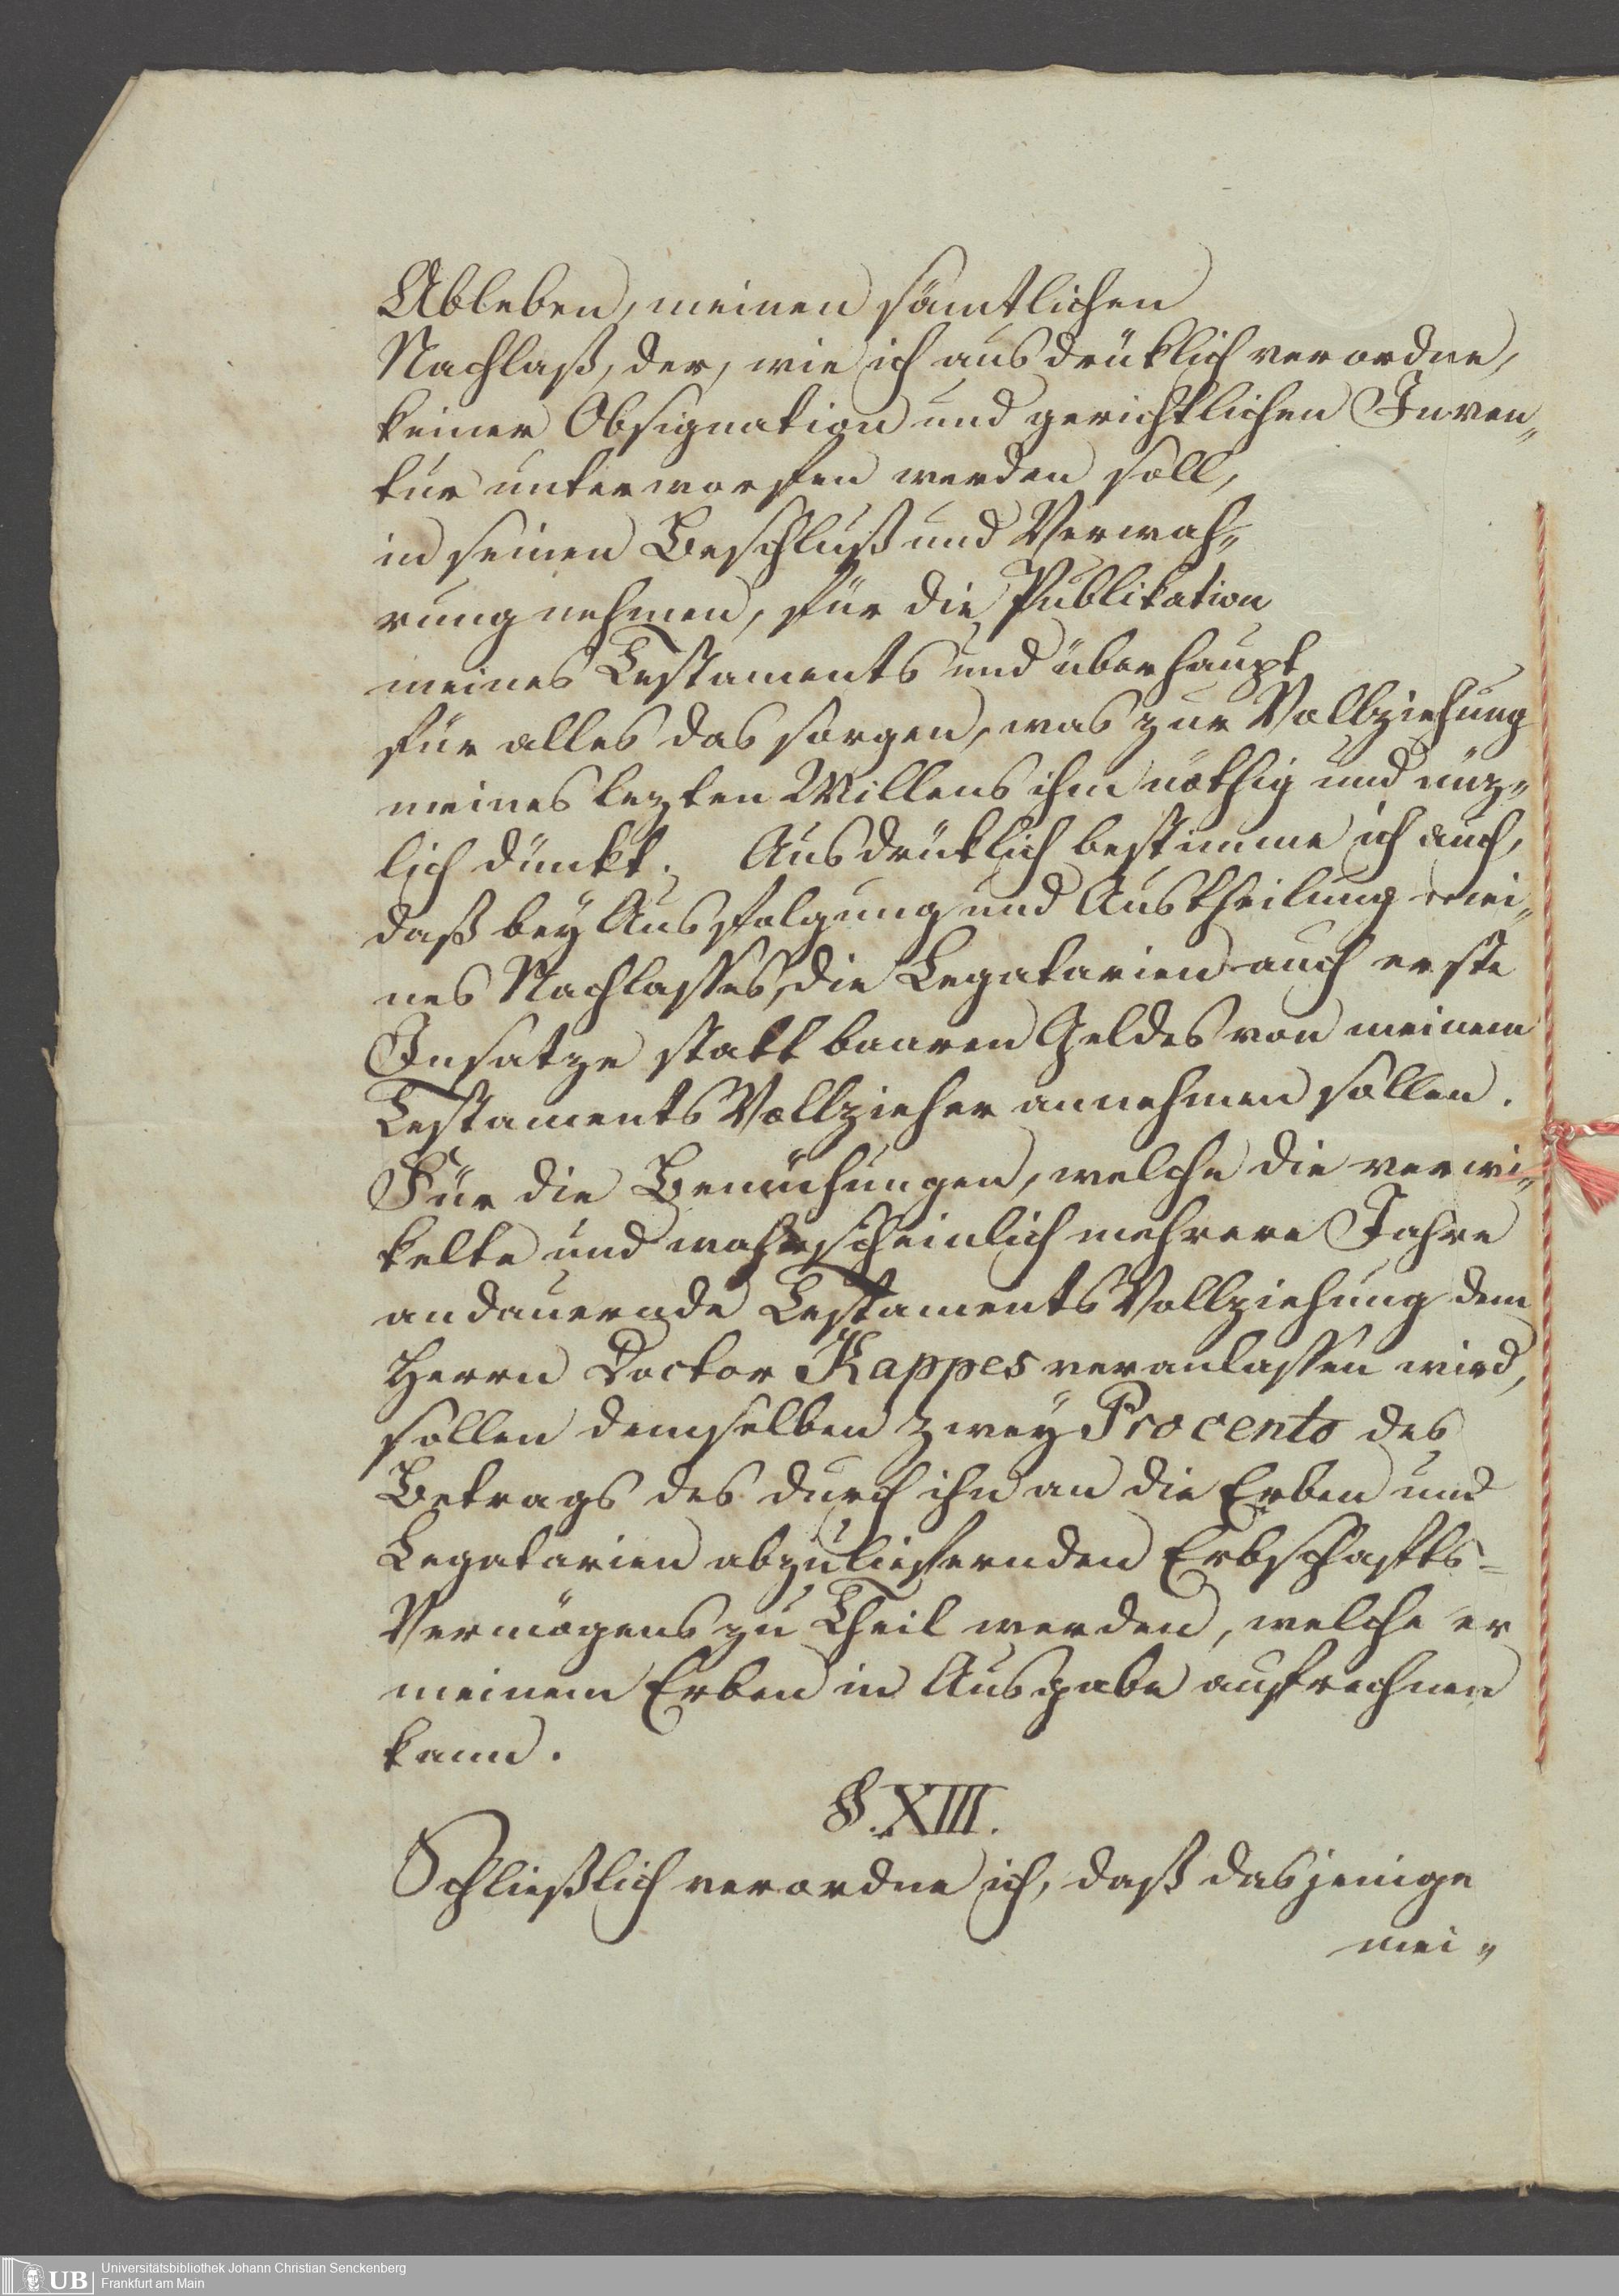 Ableben, meinen sämtlichen
Nachlaß, der, wie ich ausdrüklich verordne,
keiner Obsignation und gerichtlichen Inven„
tur unterworfen werden soll,
in seinen Beschluß und Verwah„
rung nehmen, für die Publikation
meines Testaments und überhaupt
für alles das sorgen, was zur Vollziehung
meines lezten Willens ihm nöthig und nüz„
lich dünkt. Ausdrüklich bestimme ich auch,
daß bey Ausfolgung und Austheilung mei„
nes Nachlasses, die Legatarien auch erste
Insatze statt baaren Geldes von meinem
Testaments Vollzieher annehmen sollen.
Für die Bemühungen, welche die verwi„
kelte und wahrscheinlich mehrere Jahre
andauernde Testaments Vollziehung dem
Herrn Doctor Kappes veranlassen wird,
sollen demselben zwey Procento des
Betrags des durch ihn an die Erben und
Legatarien abzuliefernden Erbschafts=
Vermögens zu Theil werden, welche er
meinem Erben in Ausgabe aufrechnen
kann.
§. XIII.
Schließlich verordne ich, daß dasjenige
mei„
UB
Universitätsbibliothek Johann Christian Senckenberg
Frankfurt am Main